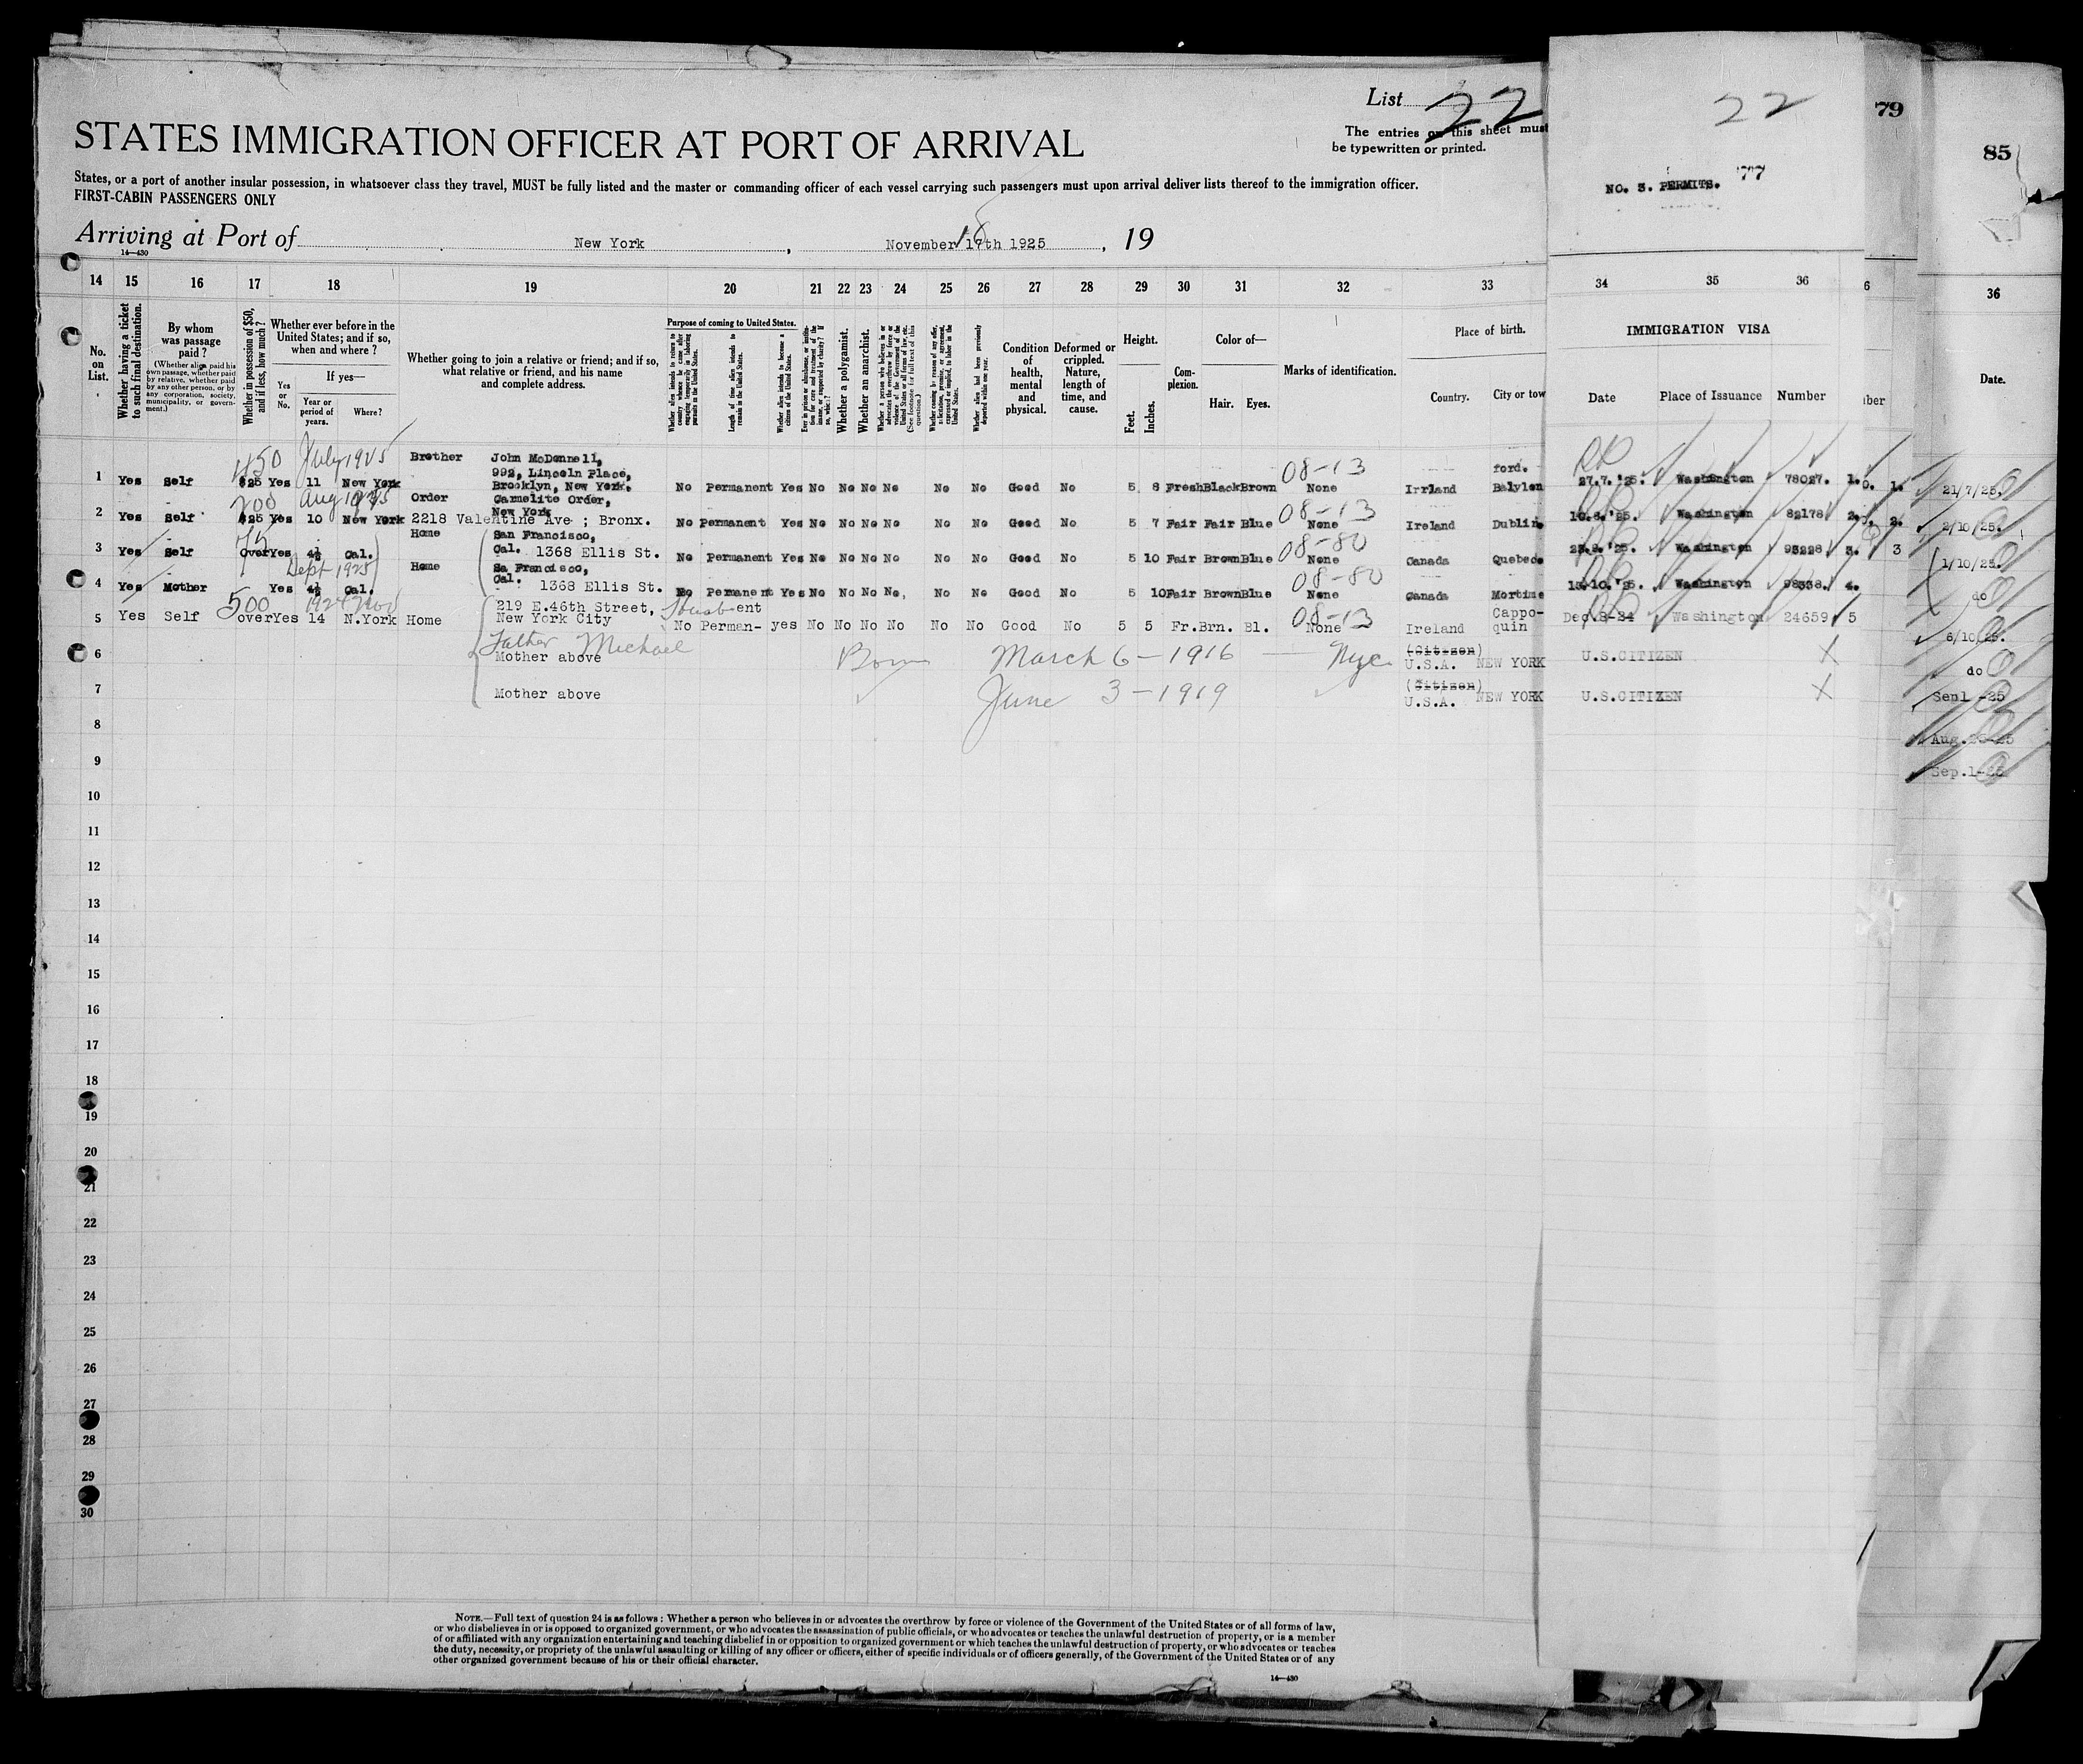 List 22
The entries on this sheet must
be typewritten or printed.
STATES IMMIGRATION OFFICER AT PORT OF ARRIVAL
States, or a port of another insular possession, in whatsoever class they travel, MUST be fully listed and the master or commanding officer of each vessel carrying such passengers must upon arrival deliver lists thereof to the immigration officer.
FIRST-CABIN PASSENGERS ONLY
Arriving at Port of New York, November 17th 1925, 19
18
14—430
22
79
85
NO. 3. PERMITS. 77
14 15 16 17 18 19 20 21 22 23 24 25 26 27 28 29 30 31 32 33 34 35 36 6 36
No. on List.
Whether having a ticket to such final destination.
By whom was passage paid?
(Whether alien paid his own passage, whether paid by relative, whether paid by any other person, or by any corporation, society, municipality, or government.)
Whether in possession of $50, and if less, how much?
Whether ever before in the United States; and if so, when and where?
Yes or No.
If yes—
Year or period of years.
Where?
Whether going to join a relative or friend; and if so, what relative or friend, and his name and complete address.
Purpose of coming to United States.
Whether alien intends to return to country whence he came after engaging temporarily in laboring pursuits in the United States.
Length of time alien intends to remain in the United States.
Whether alien intends to become a citizen of the United States.
Whether a polygamist.
Whether an anarchist.
Whether alien had been previously deported within one year.
Condition of health, mental and physical.
Deformed or crippled. Nature, length of time, and cause.
Height.
Feet. Inches.
Complexion.
Color of—
Hair. Eyes.
Marks of identification.
Place of birth.
Country. City or tow
IMMIGRATION VISA
Date Place of Issuance Number
ber
Date.
450 July 1925 Brother John McDonnell, 08-13 ford.
992, Lincoln Place,
1 Yes Self $25 Yes 11 New York Brooklyn, New York. No Permanent Yes No No No No No No Good No 5 8 Fresh Black Brown None Irrland Balylon 27.7.'25. Washington 78027. 1. 1. 21/7/25.
200 Aug 1925 Order Carmelite Order, 08-13
New York
2 Yes Self $25 Yes 10 New York 2218 Valentine Ave ; Bronx. No Permanent Yes No No No No No No Good No 5 7 Fair Fair Blue None Ireland Dublin Washington 82178 2. 2. 2/10/25.
Home San Francisco, 08-80
3 Yes Self Over Yes 4½ Cal. Cal. 1368 Ellis St. No Permanent Yes No No No No No No Good No 5 10 Fair Brown Blue None Canada Quebec Washington 93228 3. 3 1/10/25.
Sept 1925 Home Sa Francisco, 08-80
4 Yes Mother Yes 4½ Cal. Cal. 1368 Ellis St. No Permanent Yes No No No No, No No Good No 5 10 Fair Brown Blue None Canada Mortime 13.10.'25. Washington 98338. 4. do
500 1924 Nov 219 E.46th Street, Husb ent 08-13 Cappo-
5 Yes Self over Yes 14 N.York Home New York City No Perman- yes No No No No No No Good No 5 5 Fr. Brn. Bl. None Ireland quin Dec.8-24 Washington 24659 5 6/10/25.
Father Michael
6 Mother above Born March 6-1916 — Nyc (Citizen) U.S.A. NEW YORK U.S.CITIZEN X do
7 Mother above June 3-1919 (Citizen) U.S.A. NEW YORK U.S.CITIZEN X Sep1 -25
8
Sep.1-25
9
10
11
12
13
14
15
16
17
18
19
20
21
22
23
24
25
26
27
28
29
30
NOTE.—Full text of question 24 is as follows: Whether a person who believes in or advocates the overthrow by force or violence of the Government of the United States or of all forms of law,
or who disbelieves in or is opposed to organized government, or who advocates the assassination of public officials, or who advocates or teaches the unlawful destruction of property, or is a member
of or affiliated with any organization entertaining and teaching disbelief in or opposition to organized government or which teaches the unlawful destruction of property, or who advocates or teaches
the duty, necessity, or propriety of the unlawful assaulting or killing of any officer or officers, either of specific individuals or of officers generally, of the Government of the United States or of any
other organized government because of his or their official character.
14—430